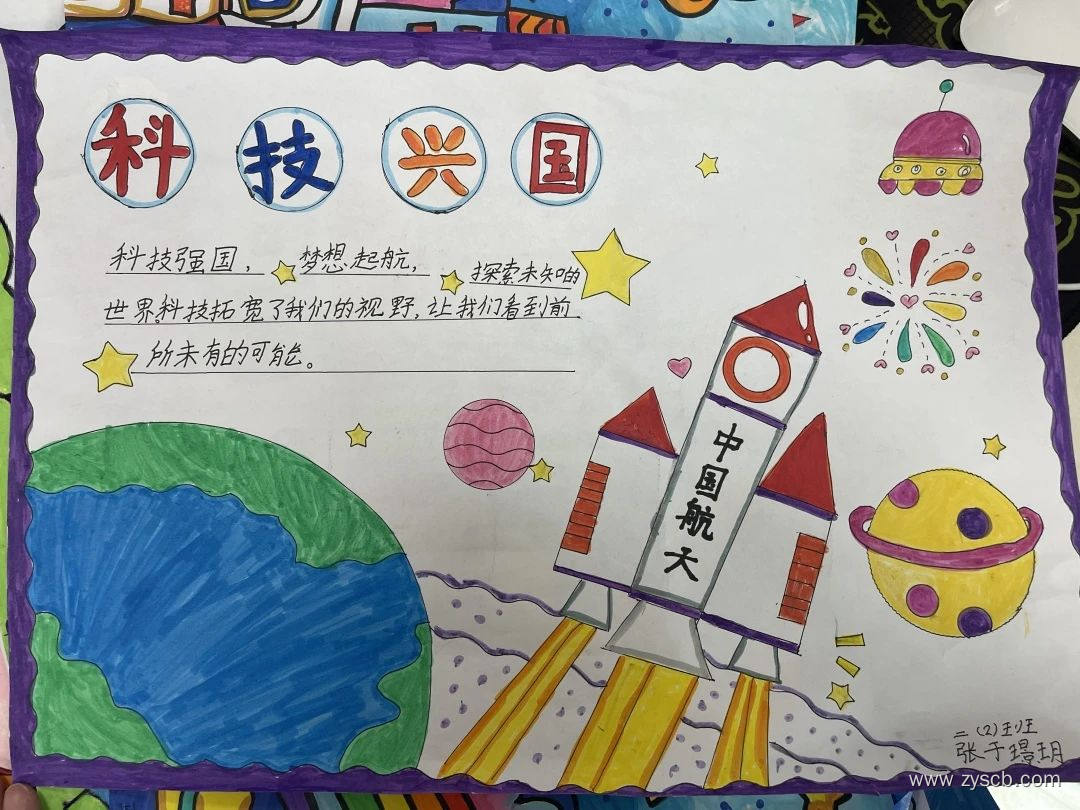 科技兴国
科技强国，梦想起航，探索未知的
世界。科技拓宽了我们的视野，让我们看到前
所未有的可能。
中国航天
二（2）班
张于璟玥
www.zyscb.com